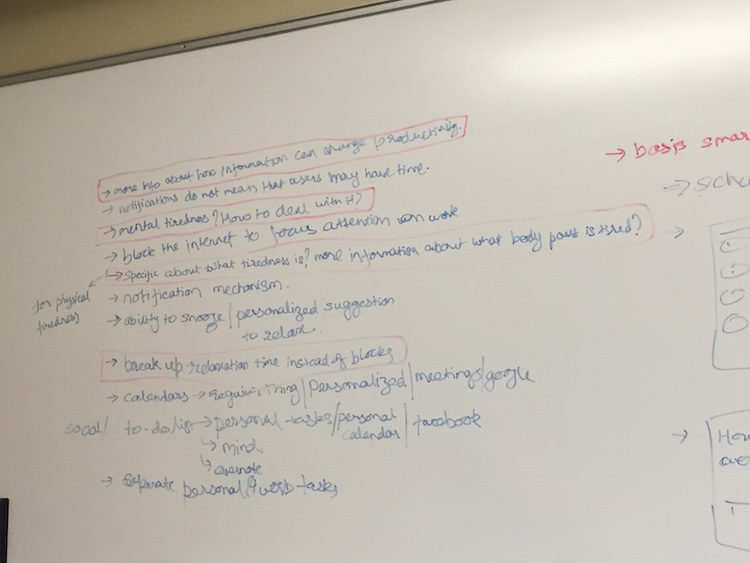 → more info about how information can change productivity.
→ notifications do not mean that users may have time.
→ mental tiredness? How to deal with it?
→ block the internet to focus attention on work
→ specific about what tiredness is? more information about what body part is tired?
for physical
tiredness
→ notification mechanism.
→ ability to snooze / personalized suggestion
to relax.
→ break up relaxation time instead of blocks
→ calendars → / personalized / meetings / google
social / to-do list → personal tasks / personal
calendar / facebook
↳ mind
↳ evernote
→ separate personal & work tasks
→ basis smar
→ sch
→
→ How
ave